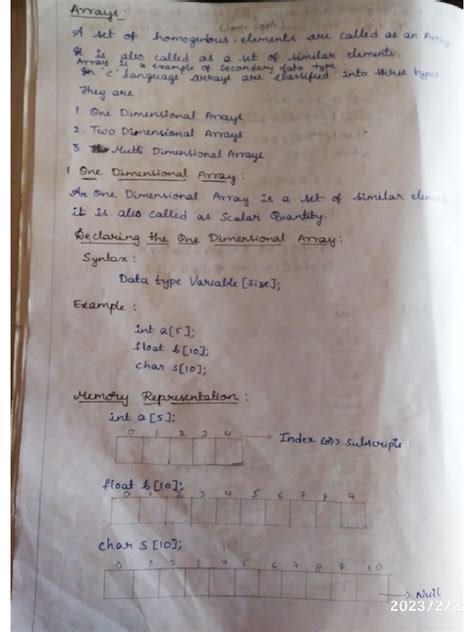 Arrays :
(same caste)
A set of homogenious elements are called as an Array
It is also called as a set of similar elements.
Array is a example of secondary data type.
In 'C' language arrays are classified into three types
They are :
1. One Dimensional Arrays
2. Two Dimensional Arrays
3 Multi Dimensional Arrays
1. One Dimensional Array :
An One Dimensional Array is a set of similar elemen
it is also called as Scalar Quantity.
Declaring the One Dimensional Array :
Syntax :
Data type Variable [size];
Example :
int a[5];
float b[10];
char s[10];
Memory Representation :
int a[5];
0 1 2 3 4
Index (or) Subscripts
float b[10];
0 1 2 3 4 5 6 7 8 9
char s[10];
0 1 2 3 4 5 6 7 8 9 10
Null
2023/2/22